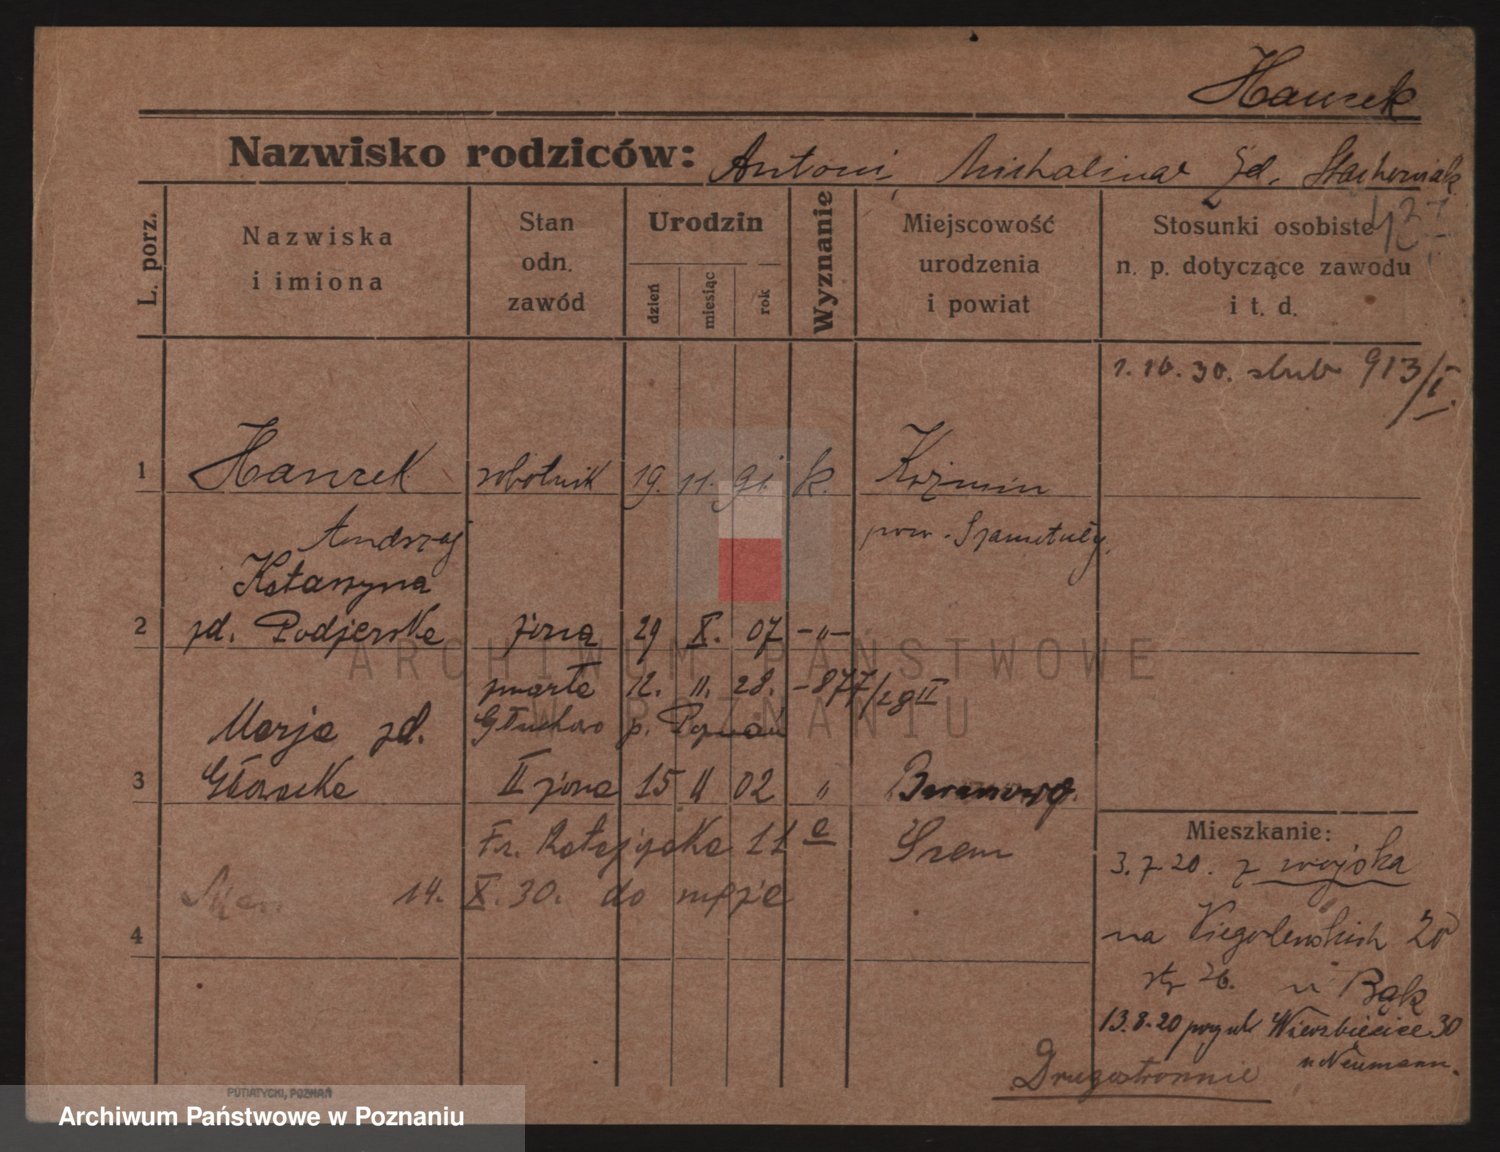 Hanzek
Nazwisko rodziców: Antoni, Michalina zd. Stachowiak
L. porz.
Nazwiska i imiona
Stan odn. zawód
Urodzin
dzień
miesiąc
rok
Wyznanie
Miejscowość urodzenia i powiat
Stosunki osobiste n. p. dotyczące zawodu i t. d.
1. 10. 30. ślub 913/I.
1 Hanzek robotnik 19. 11. 91. k. Koźmin
Andrzej pow. Szamotuły.
Katarzyna
2 zd. Podjerske żona 29 X. 07 -"-
zmarła 12. 11. 28. -877/28 II
Marja zd. Głuchowo p. Poznań
3 II żona 15 11 02 "
Fr. Ratajczaka 11 e Śrem
14. X. 30. do męża
4
Mieszkanie:
3. 7. 20. z wojska
na 20
u Bąk
13. 8. 20 Wierzbięcice 30
u Neumann.
Drugostronnie
PUTIATYCKI, POZNAŃ
ARCHIWUM PAŃSTWOWE
W POZNANIU
Archiwum Państwowe w Poznaniu